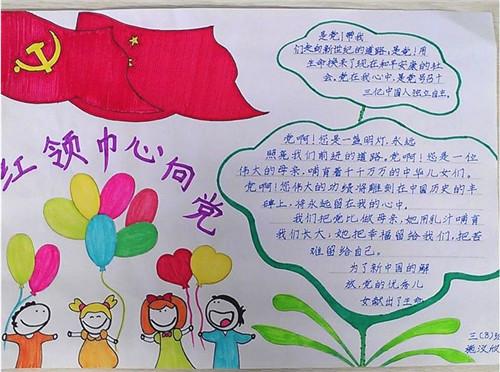 红领巾心向党
是党!带我
们走向新世纪的道路,是党!用
生命换来了现在和平安康的社
会,党在我心中,是党号召十
三亿中国人独立自主。
党啊!您是一盏明灯,永远
照亮我们前进的道路。党啊!您是一位
伟大的母亲,哺育着千千万万的中华儿女们。
党啊!您伟大的功绩将雕刻在中国历史的丰
碑上,将永远留在我的心中。
我们把党比做母亲,她用乳汁哺育
我们长大,她把幸福留给我们,把苦
难留给自己。
为了新中国的解
放,党的优秀儿
女献出了生命
三(8)班